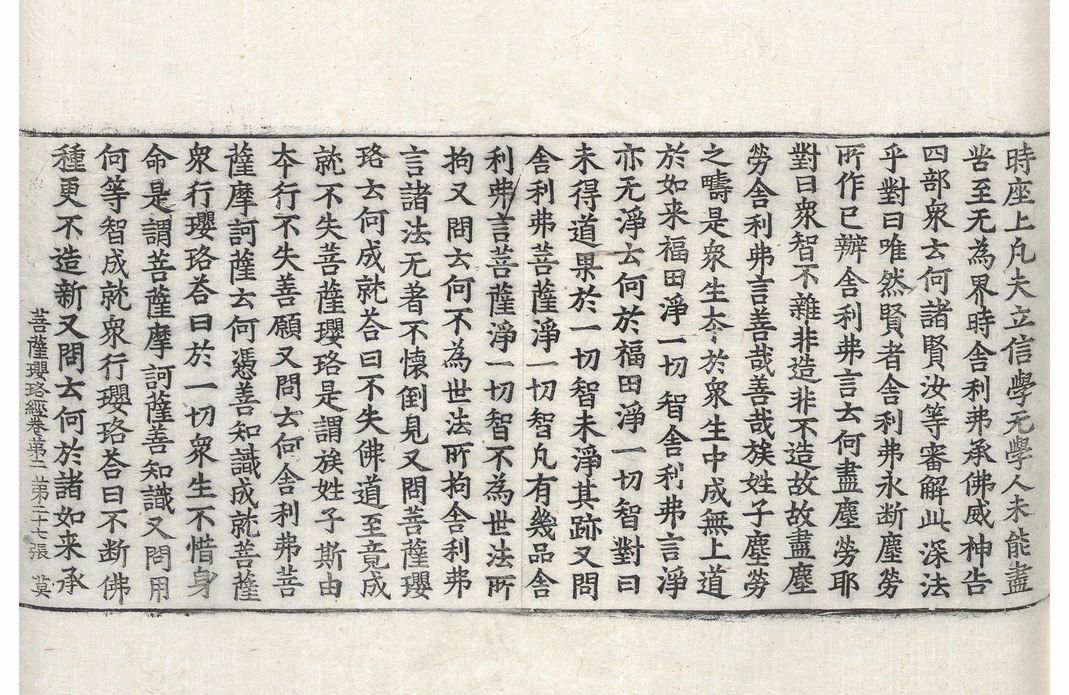 時座上凡夫立信學无學人未能盡
苦至无為界時舍利弗承佛威神告
四部衆云何諸賢汝等審解此深法
乎對曰唯然賢者舍利弗永断塵勞
所作已辦舍利弗言云何盡塵勞耶
對曰衆智不雜非造非不造故故盡塵
勞舍利弗言善哉善哉族姓子塵勞
之疇是衆生夲於衆生中成無上道
於如来福田淨一切智舍利弗言淨
亦无淨云何於福田淨一切智對曰
未得道果於一切智未淨其跡又問
舍利弗菩薩淨一切智凡有幾品舍
利弗言菩薩淨一切智不為世法所
拘又問云何不為世法所拘舍利弗
言諸法无著不懷倒見又問菩薩瓔
珞云何成就荅曰不失佛道至竟成
就不失菩薩瓔珞是謂族姓子斯由
夲行不失善願又問云何舍利弗菩
薩摩訶薩云何憑善知識成就菩薩
衆行瓔珞荅曰於一切衆生不惜身
命是謂菩薩摩訶薩善知識又問用
何等智成就衆行瓔珞荅曰不断佛
種更不造新又問云何於諸如来承
菩薩瓔珞經卷第二 第二十七張 莫